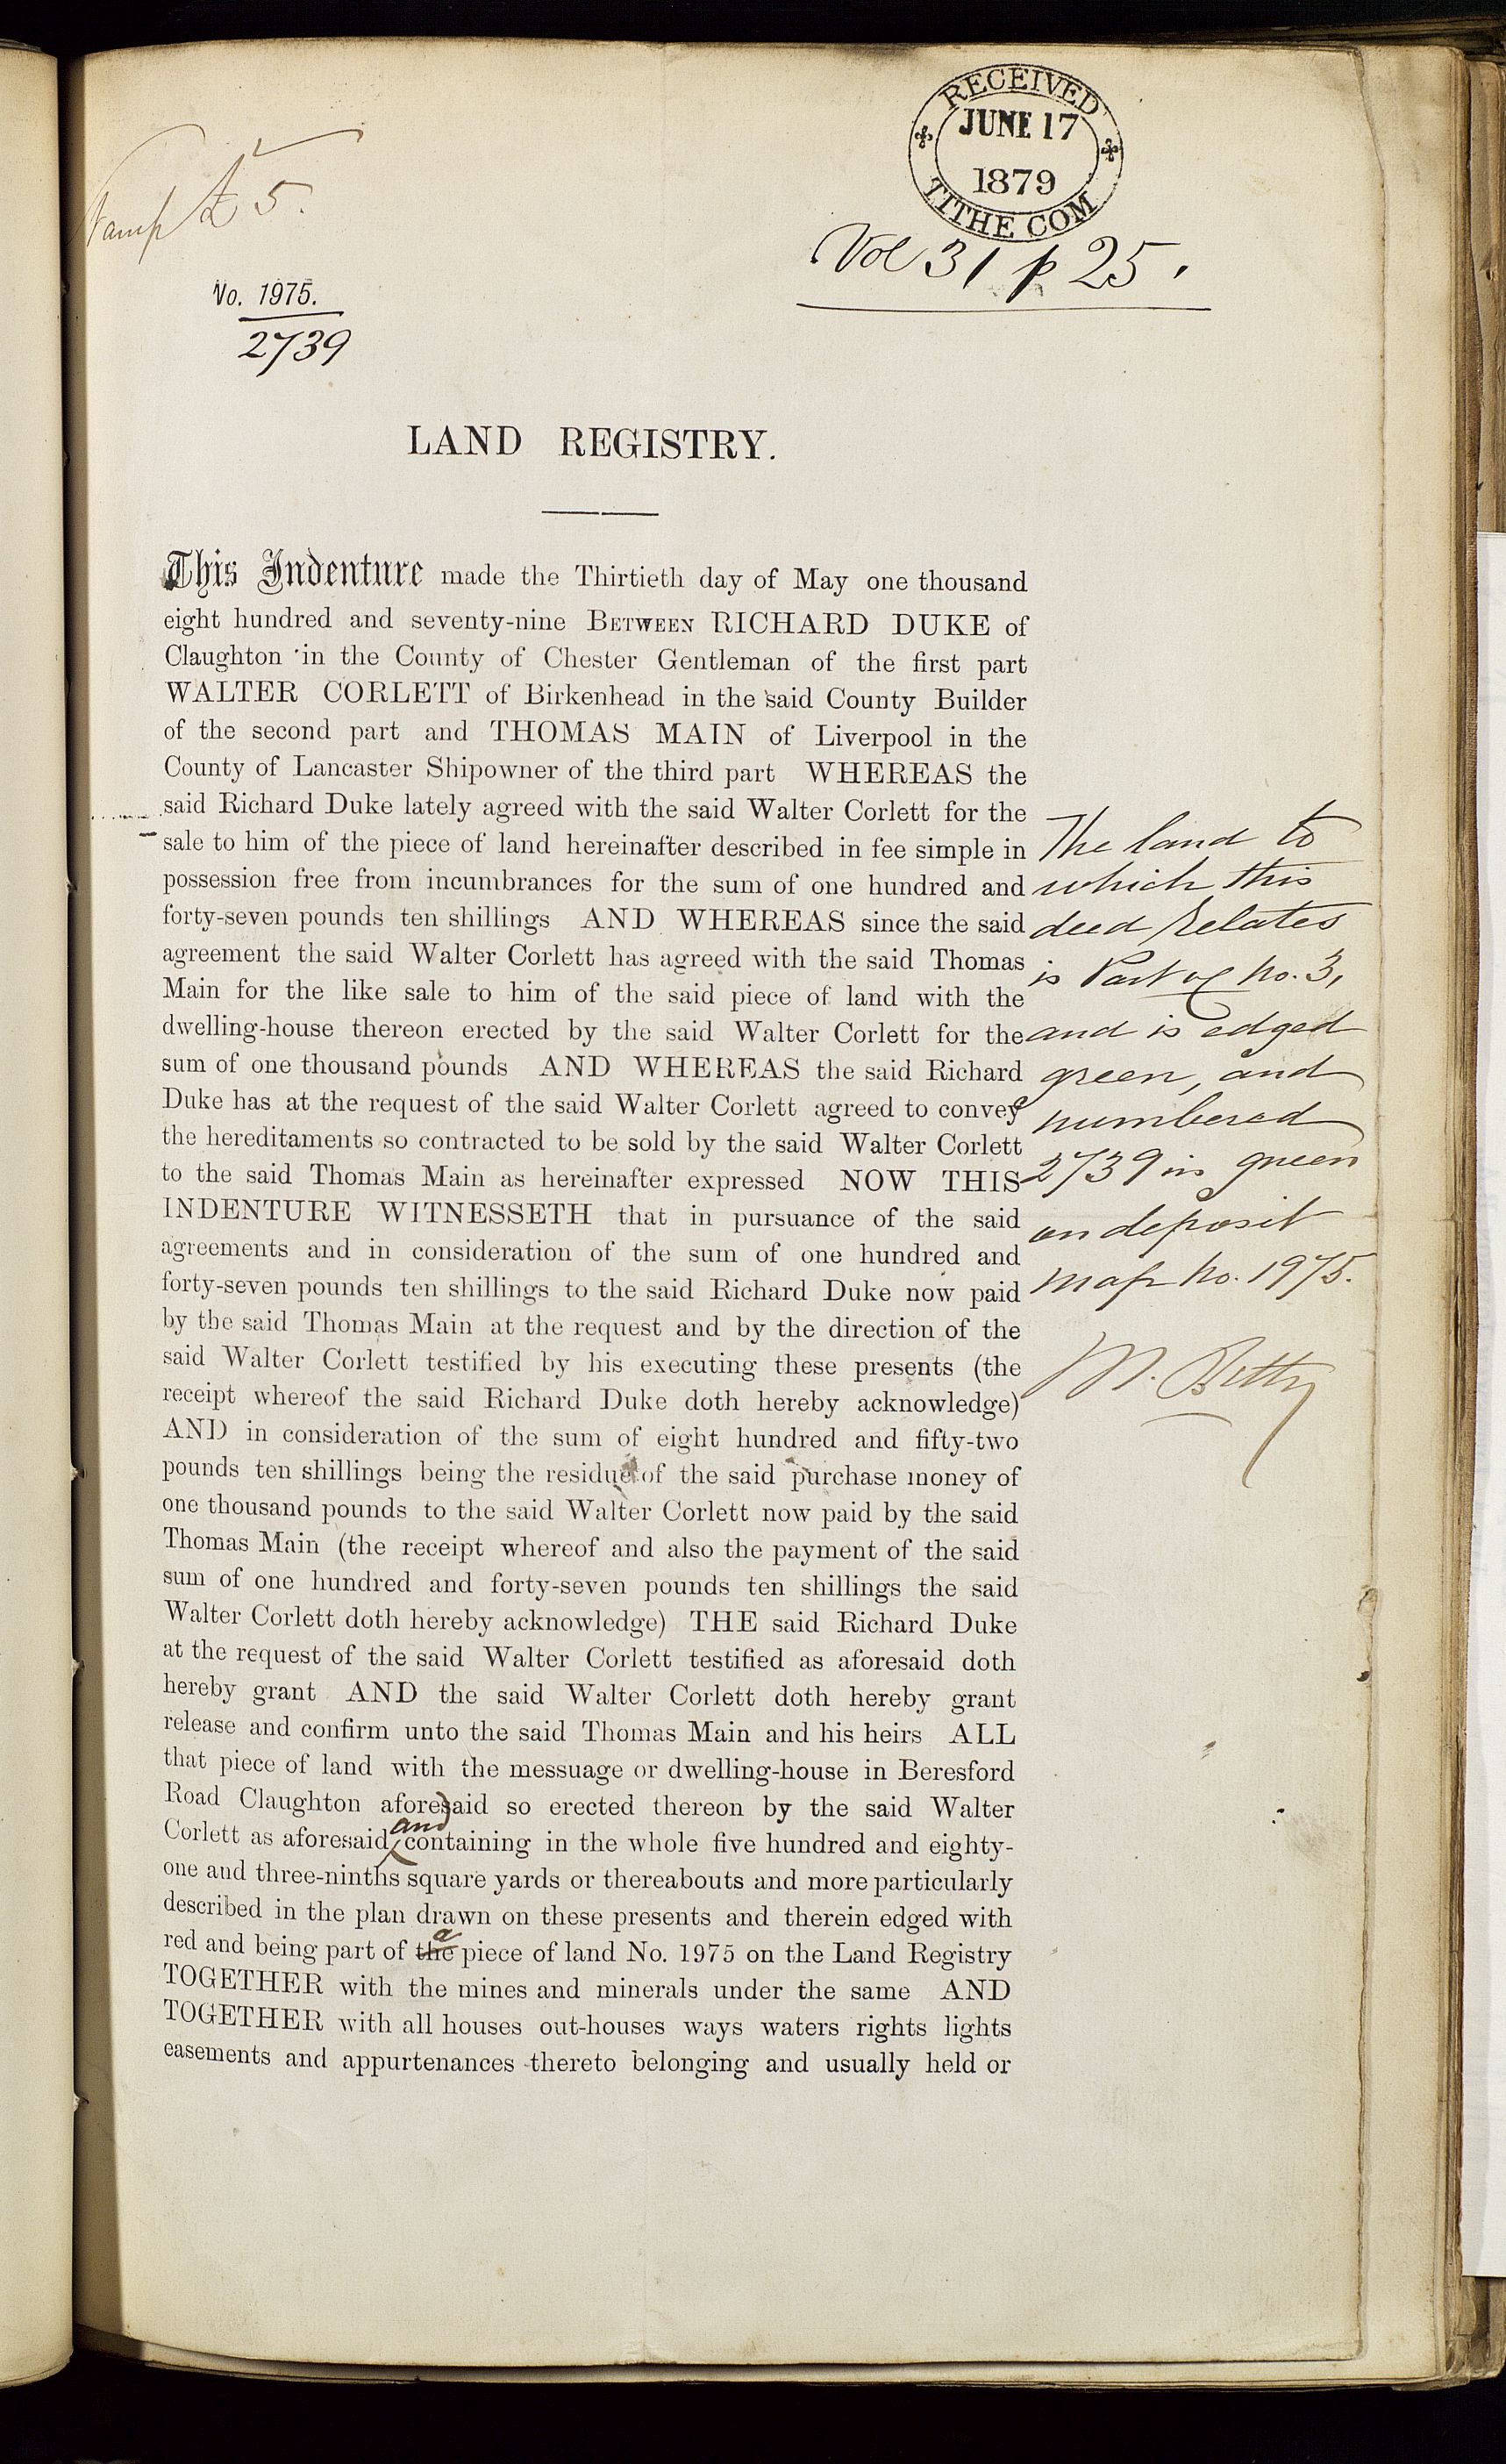 RECEIVED
JUNE 17
1879
TITHE COM
Stamp £5.
Vol 31 p 25.
No. 1975.
2739
LAND REGISTRY.
This Indenture made the Thirtieth day of May one thousand
eight hundred and seventy-nine BETWEEN RICHARD DUKE of
Claughton in the County of Chester Gentleman of the first part
WALTER CORLETT of Birkenhead in the said County Builder
of the second part and THOMAS MAIN of Liverpool in the
County of Lancaster Shipowner of the third part WHEREAS the
said Richard Duke lately agreed with the said Walter Corlett for the
sale to him of the piece of land hereinafter described in fee simple in
possession free from incumbrances for the sum of one hundred and
forty-seven pounds ten shillings AND WHEREAS since the said
agreement the said Walter Corlett has agreed with the said Thomas
Main for the like sale to him of the said piece of land with the
dwelling-house thereon erected by the said Walter Corlett for the
sum of one thousand pounds AND WHEREAS the said Richard
Duke has at the request of the said Walter Corlett agreed to convey
the hereditaments so contracted to be sold by the said Walter Corlett
to the said Thomas Main as hereinafter expressed NOW THIS
INDENTURE WITNESSETH that in pursuance of the said
agreements and in consideration of the sum of one hundred and
forty-seven pounds ten shillings to the said Richard Duke now paid
by the said Thomas Main at the request and by the direction of the
said Walter Corlett testified by his executing these presents (the
receipt whereof the said Richard Duke doth hereby acknowledge)
AND in consideration of the sum of eight hundred and fifty-two
pounds ten shillings being the residue of the said purchase money of
one thousand pounds to the said Walter Corlett now paid by the said
Thomas Main (the receipt whereof and also the payment of the said
sum of one hundred and forty-seven pounds ten shillings the said
Walter Corlett doth hereby acknowledge) THE said Richard Duke
at the request of the said Walter Corlett testified as aforesaid doth
hereby grant AND the said Walter Corlett doth hereby grant
release and confirm unto the said Thomas Main and his heirs ALL
that piece of land with the messuage or dwelling-house in Beresford
Road Claughton aforesaid so erected thereon by the said Walter
and
Corlett as aforesaid containing in the whole five hundred and eighty-
one and three-ninths square yards or thereabouts and more particularly
described in the plan drawn on these presents and therein edged with
a
red and being part of the piece of land No. 1975 on the Land Registry
TOGETHER with the mines and minerals under the same AND
TOGETHER with all houses out-houses ways waters rights lights
easements and appurtenances thereto belonging and usually held or
The land to
which this
deed relates
is Part of No. 3,
and is edged
green, and
numbered
2739 in green
on deposit
map No. 1975.
M. Betty